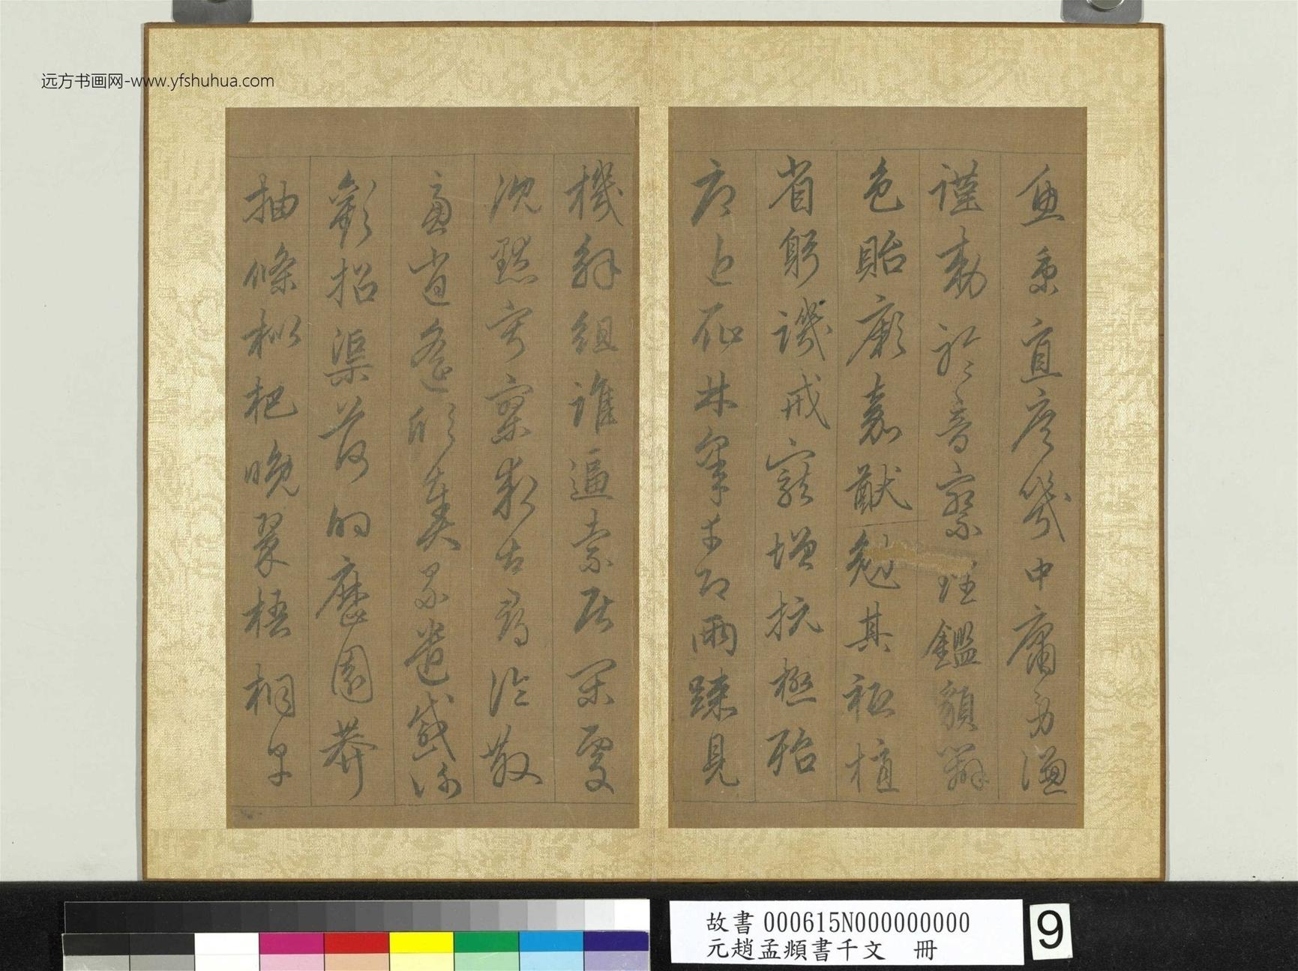 远方书画网-www.yfshuhua.com
魚秉直庶幾中庸勞謙
謹勅聆音察理鑑貌辯
色貽厥嘉猷勉其祗植
省躬譏戒寵增抗極殆
辱近恥林皋幸即兩疎見
機解組誰逼索居閑處
沉默寂寥求古尋論散
慮逍遙欣奏累遣慼謝
歡招渠荷的歷園莽
抽條枇杷晚翠梧桐早
故書 000615N000000000
元趙孟頫書千文 冊
9